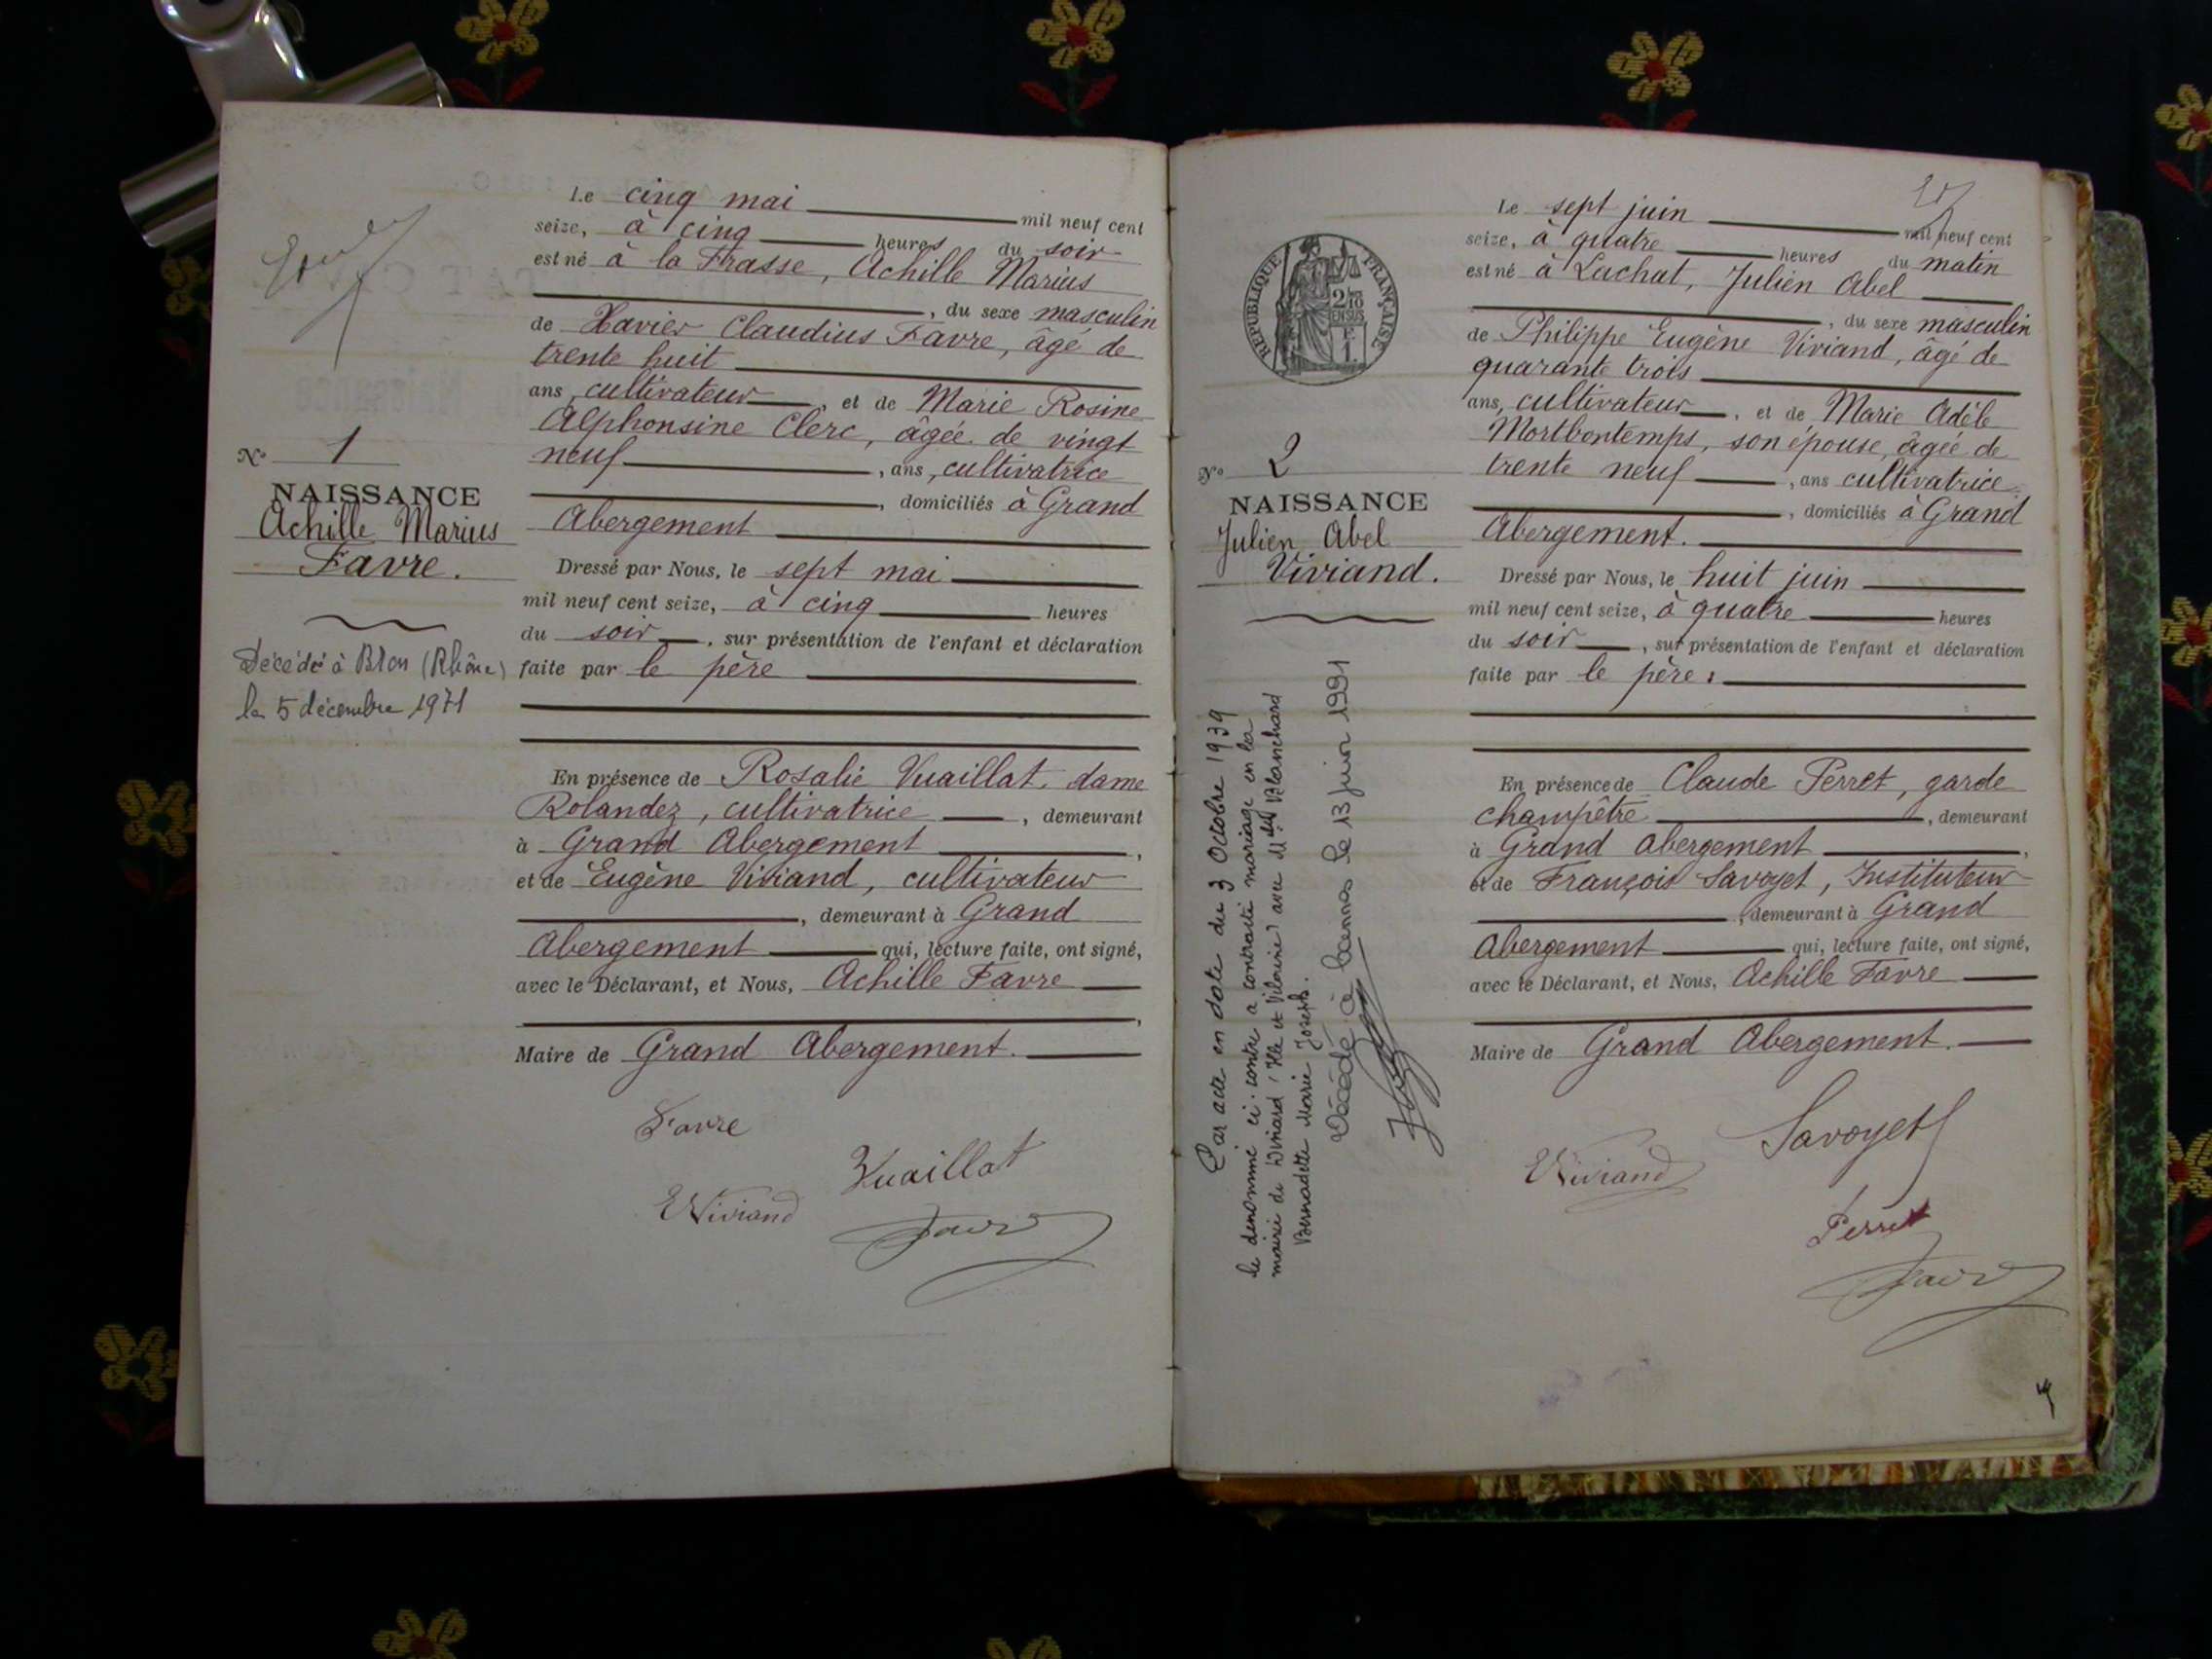 Le cinq mai mil neuf cent
seize, à cinq heures du soir
est né à la Frasse, Achille Marius
, du sexe masculin
de Xavier Claudius Favre, âgé de
trente huit
ans, cultivateur, et de Marie Rosine
Alphonsine Clerc, âgée de vingt
neuf, ans, cultivatrice
, domiciliés à Grand
Abergement
Dressé par Nous, le sept mai
mil neuf cent seize, à cinq heures
du soir, sur présentation de l'enfant et déclaration
faite par le père
En présence de Rosalie Vuaillat, dame
Rolandez, cultivatrice, demeurant
à Grand Abergement,
et de Eugène Viviand, cultivateur
, demeurant à Grand
Abergement qui, lecture faite, ont signé,
avec le Déclarant, et Nous, Achille Favre
,
Maire de Grand Abergement.
Favre
Vuaillat
EViviand
Favre
N° 1
NAISSANCE
Achille Marius
Favre.
Décédé à Bron (Rhône)
le 5 décembre 1971
Le sept juin mil neuf cent
seize, à quatre heures du matin
est né à Lachat, Julien Abel
, du sexe masculin
de Philippe Eugène Viviand, âgé de
quarante trois
ans, cultivateur, et de Marie Adèle
Mortbontemps, son épouse, âgée de
trente neuf, ans cultivatrice
, domiciliés à Grand
Abergement.
Dressé par Nous, le huit juin
mil neuf cent seize, à quatre heures
du soir, sur présentation de l'enfant et déclaration
faite par le père.
En présence de Claude Perret, garde
champêtre, demeurant
à Grand Abergement,
et de François Savoyet, Instituteur
, demeurant à Grand
Abergement qui, lecture faite, ont signé,
avec le Déclarant, et Nous, Achille Favre
Maire de Grand Abergement.
Savoyet
EViviand
Perret
Favre
RÉPUBLIQUE FRANÇAISE
N° 2
NAISSANCE
Julien Abel
Viviand.
Par acte en date du 3 Octobre 1939
le dénommé ci-contre a contracté mariage en la
mairie de Dinard (Ille et Vilaine) avec Blanchard
Bernadette Marie Joseph.
Décédé à le 13 juin 1991